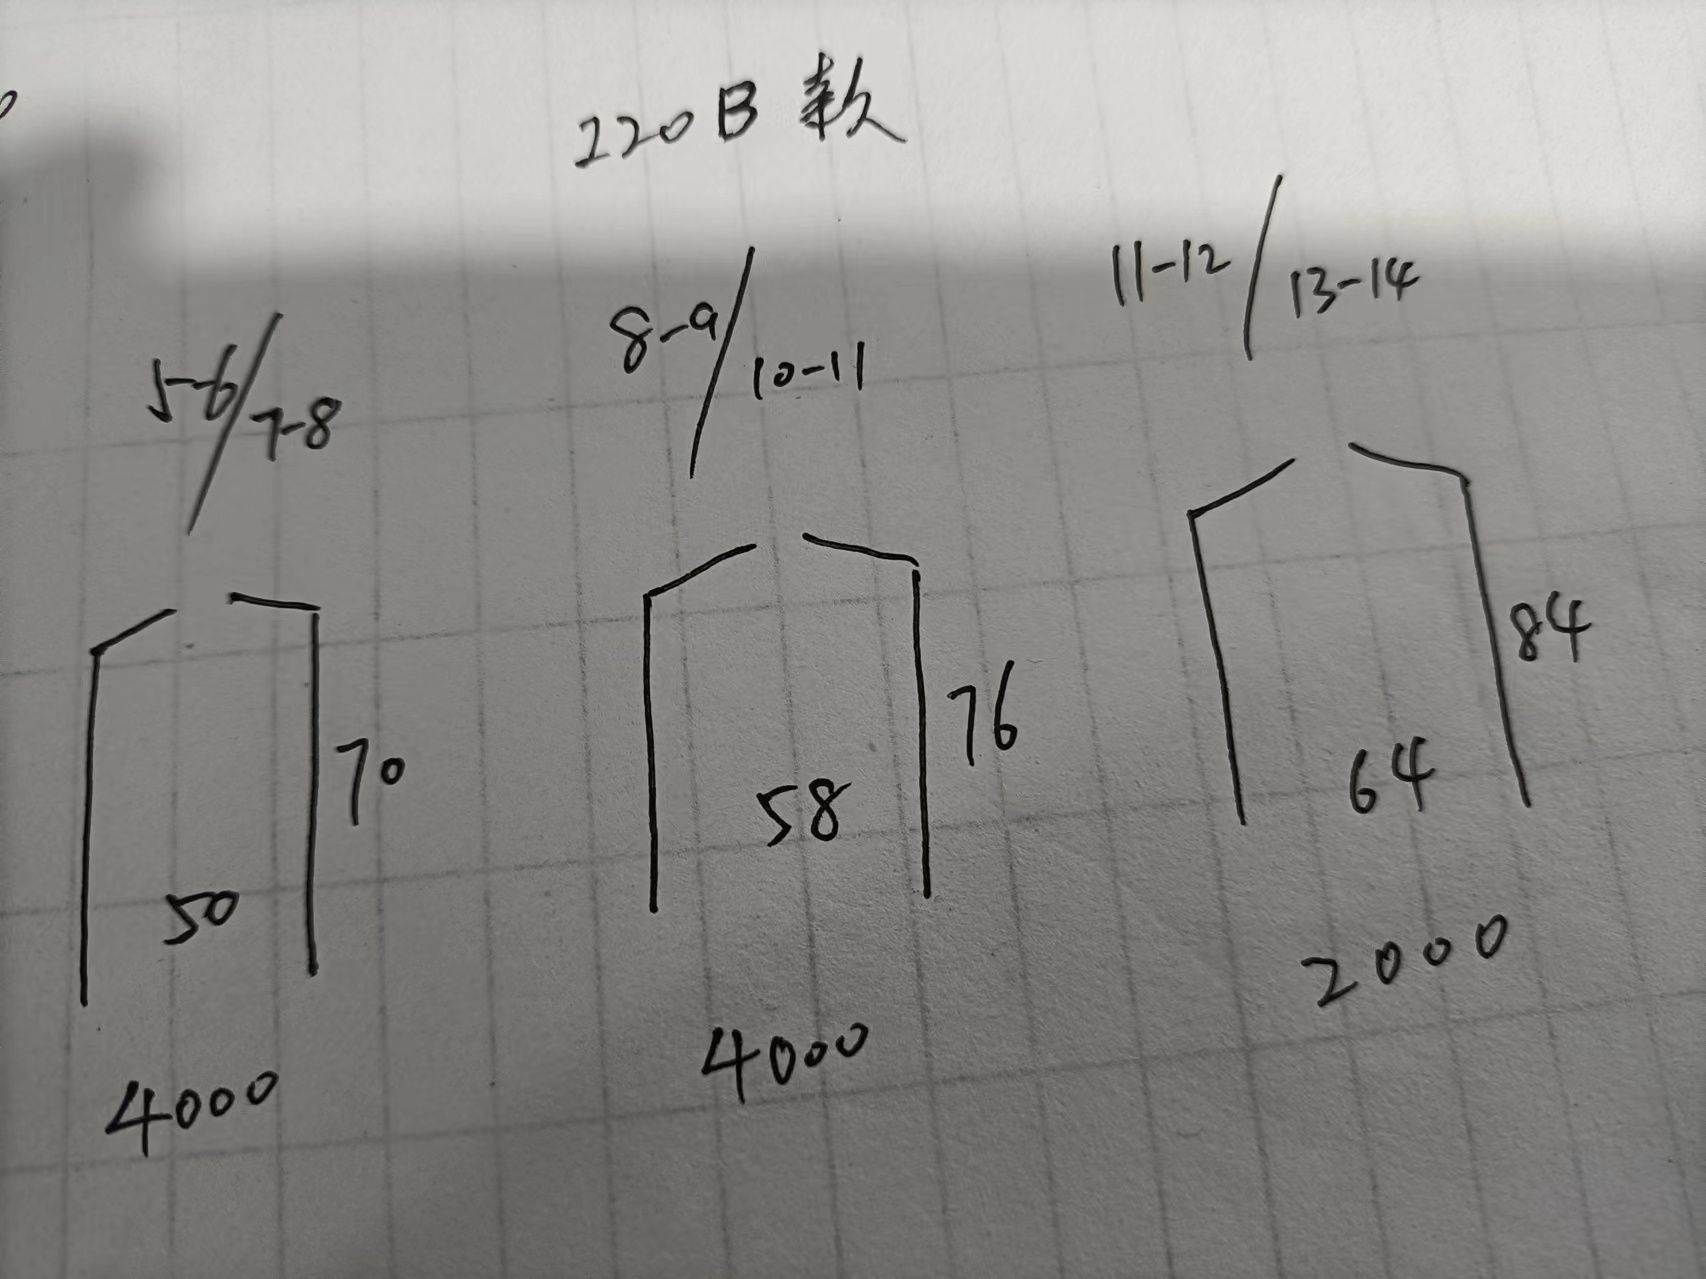 220B款
5-6/7-8
8-9/10-11
11-12/13-14
70
50
4000
76
58
4000
84
64
2000